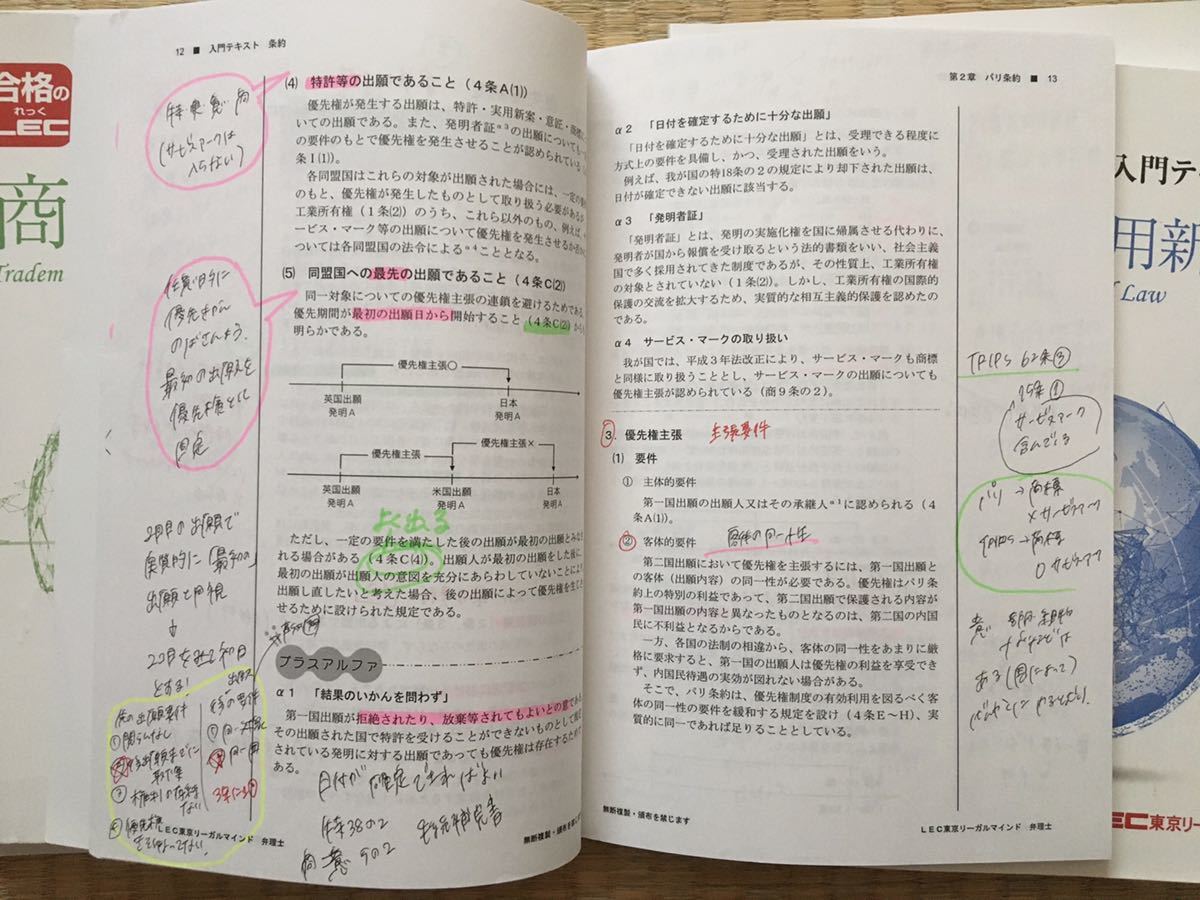 合格の
れっく
LEC
商
Tradem
12 ■ 入門テキスト 条約
(4) 特許等の出願であること（4条A(1)）
優先権が発生する出願は、特許・実用新案・意匠・商標に
いての出願である。また、発明者証α3の出願についても一
の要件のもとで優先権を発生させることが認められている
条I(1)）。
各同盟国はこれらの対象が出願された場合には、一定の要
のもと、優先権が発生したものとして取り扱う必要があるが
工業所有権（1条(2)）のうち、これら以外のもの、例えば
ービス・マーク等の出願について優先権を発生させるか否か
ついては各同盟国の法令によるα4こととなる。
(サービスマークは
入らない)
(5) 同盟国への最先の出願であること（4条C(2)）
同一対象についての優先権主張の連鎖を避けるためである
優先期間が最初の出願日から開始すること（4条C(2)）から
明らかである。
優先権主張○
英国出願 日本
発明A 発明A
優先権主張 優先権主張×
英国出願 米国出願 日本
発明A 発明A 発明A
よく出る
ただし、一定の要件を満たした後の出願が最初の出願とみな
れる場合がある（4条C(4)）。出願人が最初の出願をした後に、
最初の出願が出願人の意図を充分にあらわしていないことにより
出願し直したいと考えた場合、後の出願によって優先権を生じ
せるために設けられた規定である。
最初の出願を
固定
2回目の出願で
実質的に「最初の」
出願と同視
↓
とする!
プラスアルファ
α1 「結果のいかんを問わず」
第一国出願が拒絶されたり、放棄等されてもよいとの意である
その出願された国で特許を受けることができないものとして拒
されている発明に対する出願であっても優先権は存在するため
ある。
日付が確定できればよい
特38の2
LEC東京リーガルマインド 弁理士
無断複製・頒布を禁じま
第2章 パリ条約 ■ 13
α2 「日付を確定するために十分な出願」
「日付を確定するために十分な出願」とは、受理できる程度に
方式上の要件を具備し、かつ、受理された出願をいう。
例えば、我が国の特18条の2の規定により却下された出願は、
日付が確定できない出願に該当する。
α3 「発明者証」
「発明者証」とは、発明の実施化権を国に帰属させる代わりに、
発明者が国から報償を受け取るという法的書類をいい、社会主義
国で多く採用されてきた制度であるが、その性質上、工業所有権
の対象とされていない（1条(2)）。しかし、工業所有権の国際的
保護の交流を拡大するため、実質的な相互主義的保護を認めたの
である。
α4 サービス・マークの取り扱い
我が国では、平成3年法改正により、サービス・マークも商標
と同様に取り扱うこととし、サービス・マークの出願についても
優先権主張が認められている（商9条の2）。
3. 優先権主張 主張要件
(1) 要件
① 主体的要件
第一国出願の出願人又はその承継人α1に認められる（4
条A(1)）。
② 客体的要件 客体の同一性
第二国出願において優先権を主張するには、第一国出願と
の客体（出願内容）の同一性が必要である。優先権はパリ条
約上の特別の利益であって、第二国出願で保護される内容が
第一国出願の内容と異なったものとなるのは、第二国の内国
民に不利益となるからである。
一方、各国の法制の相違から、客体の同一性をあまりに厳
格に要求すると、第一国の出願人は優先権の利益を享受でき
ず、内国民待遇の実効が図れない場合がある。
そこで、パリ条約は、優先権制度の有効利用を図るべく客
体の同一性の要件を緩和する規定を設け（4条E～H）、実
質的に同一であれば足りることとしている。
TRIPS 62条③
15条①
サービスマーク
含んでる
パリ→商標
×サービスマーク
TRIPS→商標
○サービスマーク
無断複製・頒布を禁じます
LEC東京リーガルマインド 弁理士
入門テキ
用新
Law
LEC東京リー